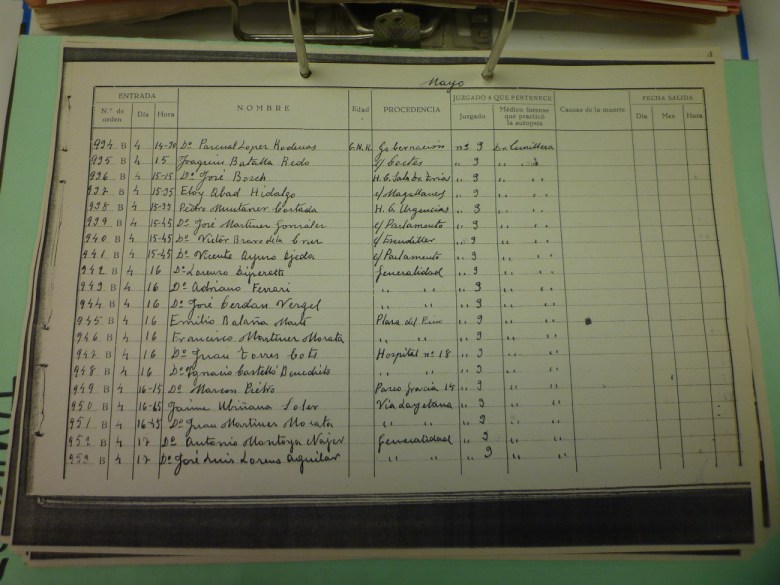 Mayo
ENTRADA NOMBRE Edad PROCEDENCIA JUZGADO A QUE PERTENECE Causas de la muerte FECHA SALIDA
N.º de orden Día Hora Juzgado Médico forense que practicó la autopsia Día Mes Hora
934 B 4 14-30 Dº Pascual Lopez Rodenas G.N.R. Gobernación nº 9 Dr. Cunillera
935 B 4 15 Joaquin Batalla Redo c/ Cortes " 9 " "
936 B 4 15-15 Dº José Bosch H.C. Sala De " 9 " "
937 B 4 15-35 Eloy Abad Hidalgo c/ Magallanes " 9 " "
938 B 4 15-35 Pedro Muntaner Cortada H.C. Urgencias " 9 " "
939 B 4 15-45 Dº José Martinez Gonzalez c/ Parlamento " 9 " "
940 B 4 15-45 Dº Victor Bravo de la Cruz c/ Escudillers " 9 " "
941 B 4 15-45 Dº Vicente Ayuso Ojeda c/ Parlamento " 9 " "
942 B 4 16 Dº Lorenzo Generalidad " 9 " "
943 B 4 16 Dº Adriano Ferrari " " " 9 " "
944 B 4 16 Dº José Cerdan Vergel " " " 9 " "
945 B 4 16 Emilio Balaña Martí Plaza del Pino " 9 " "
946 B 4 16 Francisco Martinez Morata " " " 9 " "
947 B 4 16 Dº Juan Torres Cots Hospital nº 18 " 9 " "
948 B 4 16 Dº Ignacio Castelló Benedicto " " " 9 " "
949 B 4 16-15 Dº Marcos Pietro Paseo Gracia 14 " 9 " "
950 B 4 16-45 Jaime Ubiñana Soler Via Layetana " 9 " "
951 B 4 16-45 Dº Juan Martinez Morata " " " 9 " "
952 B 4 17 Dº Antonio Montoya Najer Generalidad " 9 " "
953 B 4 17 Dº José Luis Lorenz Aguilar " " " 9 " "